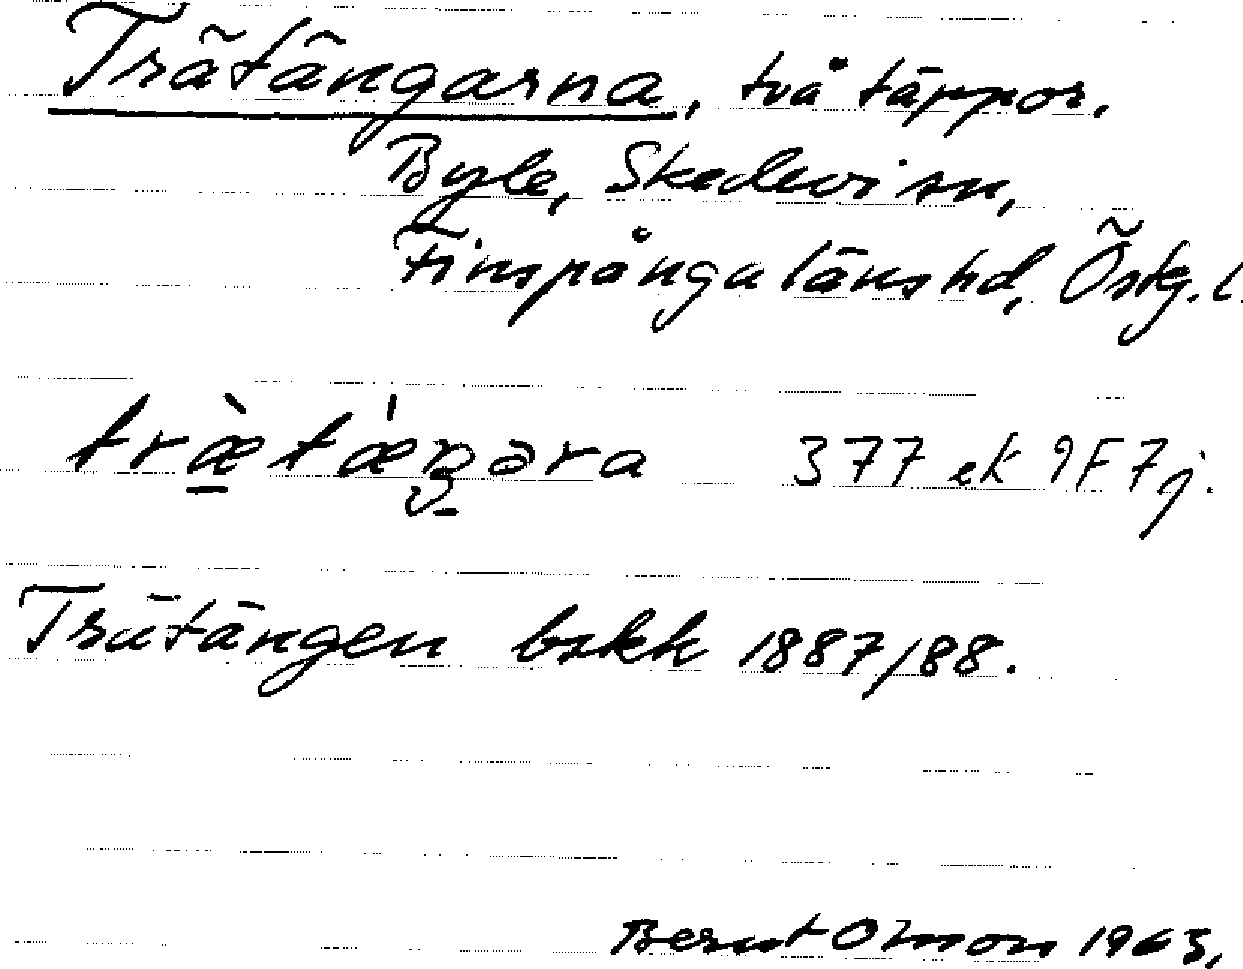 Trätängarna, två täppor.
Byle, Skedevi sn,
Finspånga läns hd, Östg. l.
træ̀tǽŋəra 377 ek 9F7j.
Trätängen bskk 1887/88.
Bernt Olsson 1963.